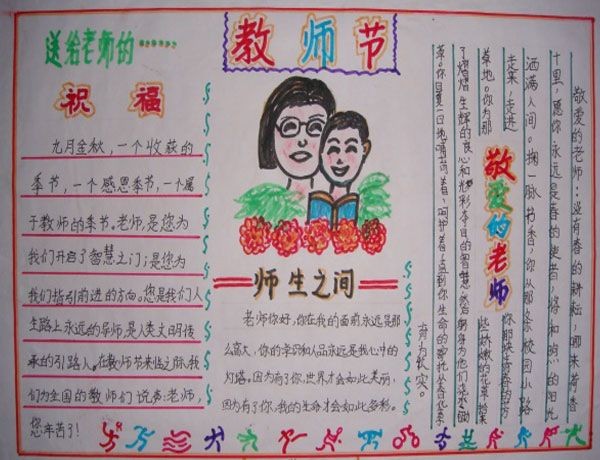 送给老师的……
祝福
九月金秋，一个收获的
季节，一个感恩季节，一个属
于教师的季节。老师，是您为
我们开启了智慧之门；是您为
我们指引前进的方向。您是我们人
生路上永远的导师，是人类文明传
承的引路人。在教师节来临之际，我
们为全国的教师们说声：老师，
您辛苦了！
教师节
师生之间
老师你好，你在我的面前永远是那
么高大，你的学识和人品永远是我心中的
灯塔。因为有了你，世界才会如此美丽，
因为有了你，我的生命才会如此多彩。
敬爱的老师
敬爱的老师：没有春的耕耘，哪来荷香
十里，愿你永远是春的使者，将和煦的阳光
洒满人间。掬一脉书香，你从那条校园小路
走来，走进
草地。你为那
你那块青春的芳
些娇嫩的花草捧来
了熠熠生辉的良心和光彩夺目的智慧，然后躬身为他们浇水锄
草。你日复一日地哺育着，呵护着，直到你生命的寄托从春花季
育为长实。